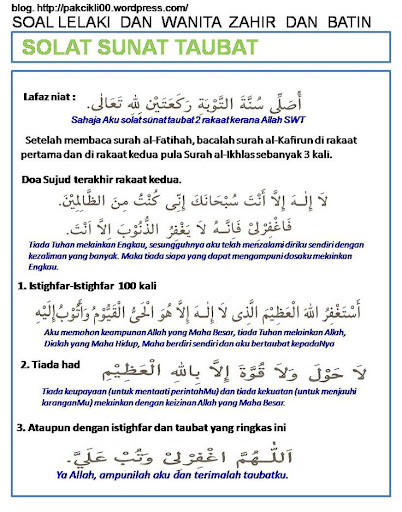 blog. http://pakcikli00.wordpress.com/
SOAL LELAKI DAN WANITA ZAHIR DAN BATIN
SOLAT SUNAT TAUBAT
Lafaz niat : أُصَلِّى سُنَّةَ التَّوْبَةِ رَكْعَتَيْنِ لِلَّهِ تَعَالَى.
Sahaja Aku solat sunat taubat 2 rakaat kerana Allah SWT
Setelah membaca surah al-Fatihah, bacalah surah al-Kafirun di rakaat
pertama dan di rakaat kedua pula Surah al-Ikhlas sebanyak 3 kali.
Doa Sujud terakhir rakaat kedua.
لَا إِلَـهَ إِلَّا أَنْتَ سُبْحَانَكَ إِنِّى كُنْتُ مِنَ الظَّالِمِيْنَ.
فَاغْفِرْلِىْ فَإِنَّهُ لَا يَغْفِرُ الذُّنُوْبَ إِلَّا أَنْتَ.
Tiada Tuhan melainkan Engkau, sesungguhnya aku telah menzalami diriku sendiri dengan
kezaliman yang banyak. Maka tiada siapa yang dapat mengampuni dosaku melainkan
Engkau.
1. Istighfar-Istighfar 100 kali
أَسْتَغْفِرُ اللهَ الْعَظِيْمَ الَّذِى لَا إِلَـهَ إِلَّا هُوَ الْحَيُّ الْقَيُّوْمُ وَأَتُوْبُ إِلَيْهِ
Aku memohon keampunan Allah yang Maha Besar, tiada Tuhan melainkan Allah,
Dialah yang Maha Hidup, Maha berdiri sendiri dan aku bertaubat kepadaNya
2. Tiada had لَا حَوْلَ وَلَا قُوَّةَ إِلَّا بِاللهِ الْعَظِيْمِ
Tiada keupayaan (untuk mentaati perintahMu) dan tiada kekuatan (untuk menjauhi
laranganMu) melainkan dengan keizinan Allah yang Maha Besar.
3. Ataupun dengan istighfar dan taubat yang ringkas ini
اَللَّهُمَّ اغْفِرْلِىْ وَتُبْ عَلَيَّ.
Ya Allah, ampunilah aku dan terimalah taubatku.